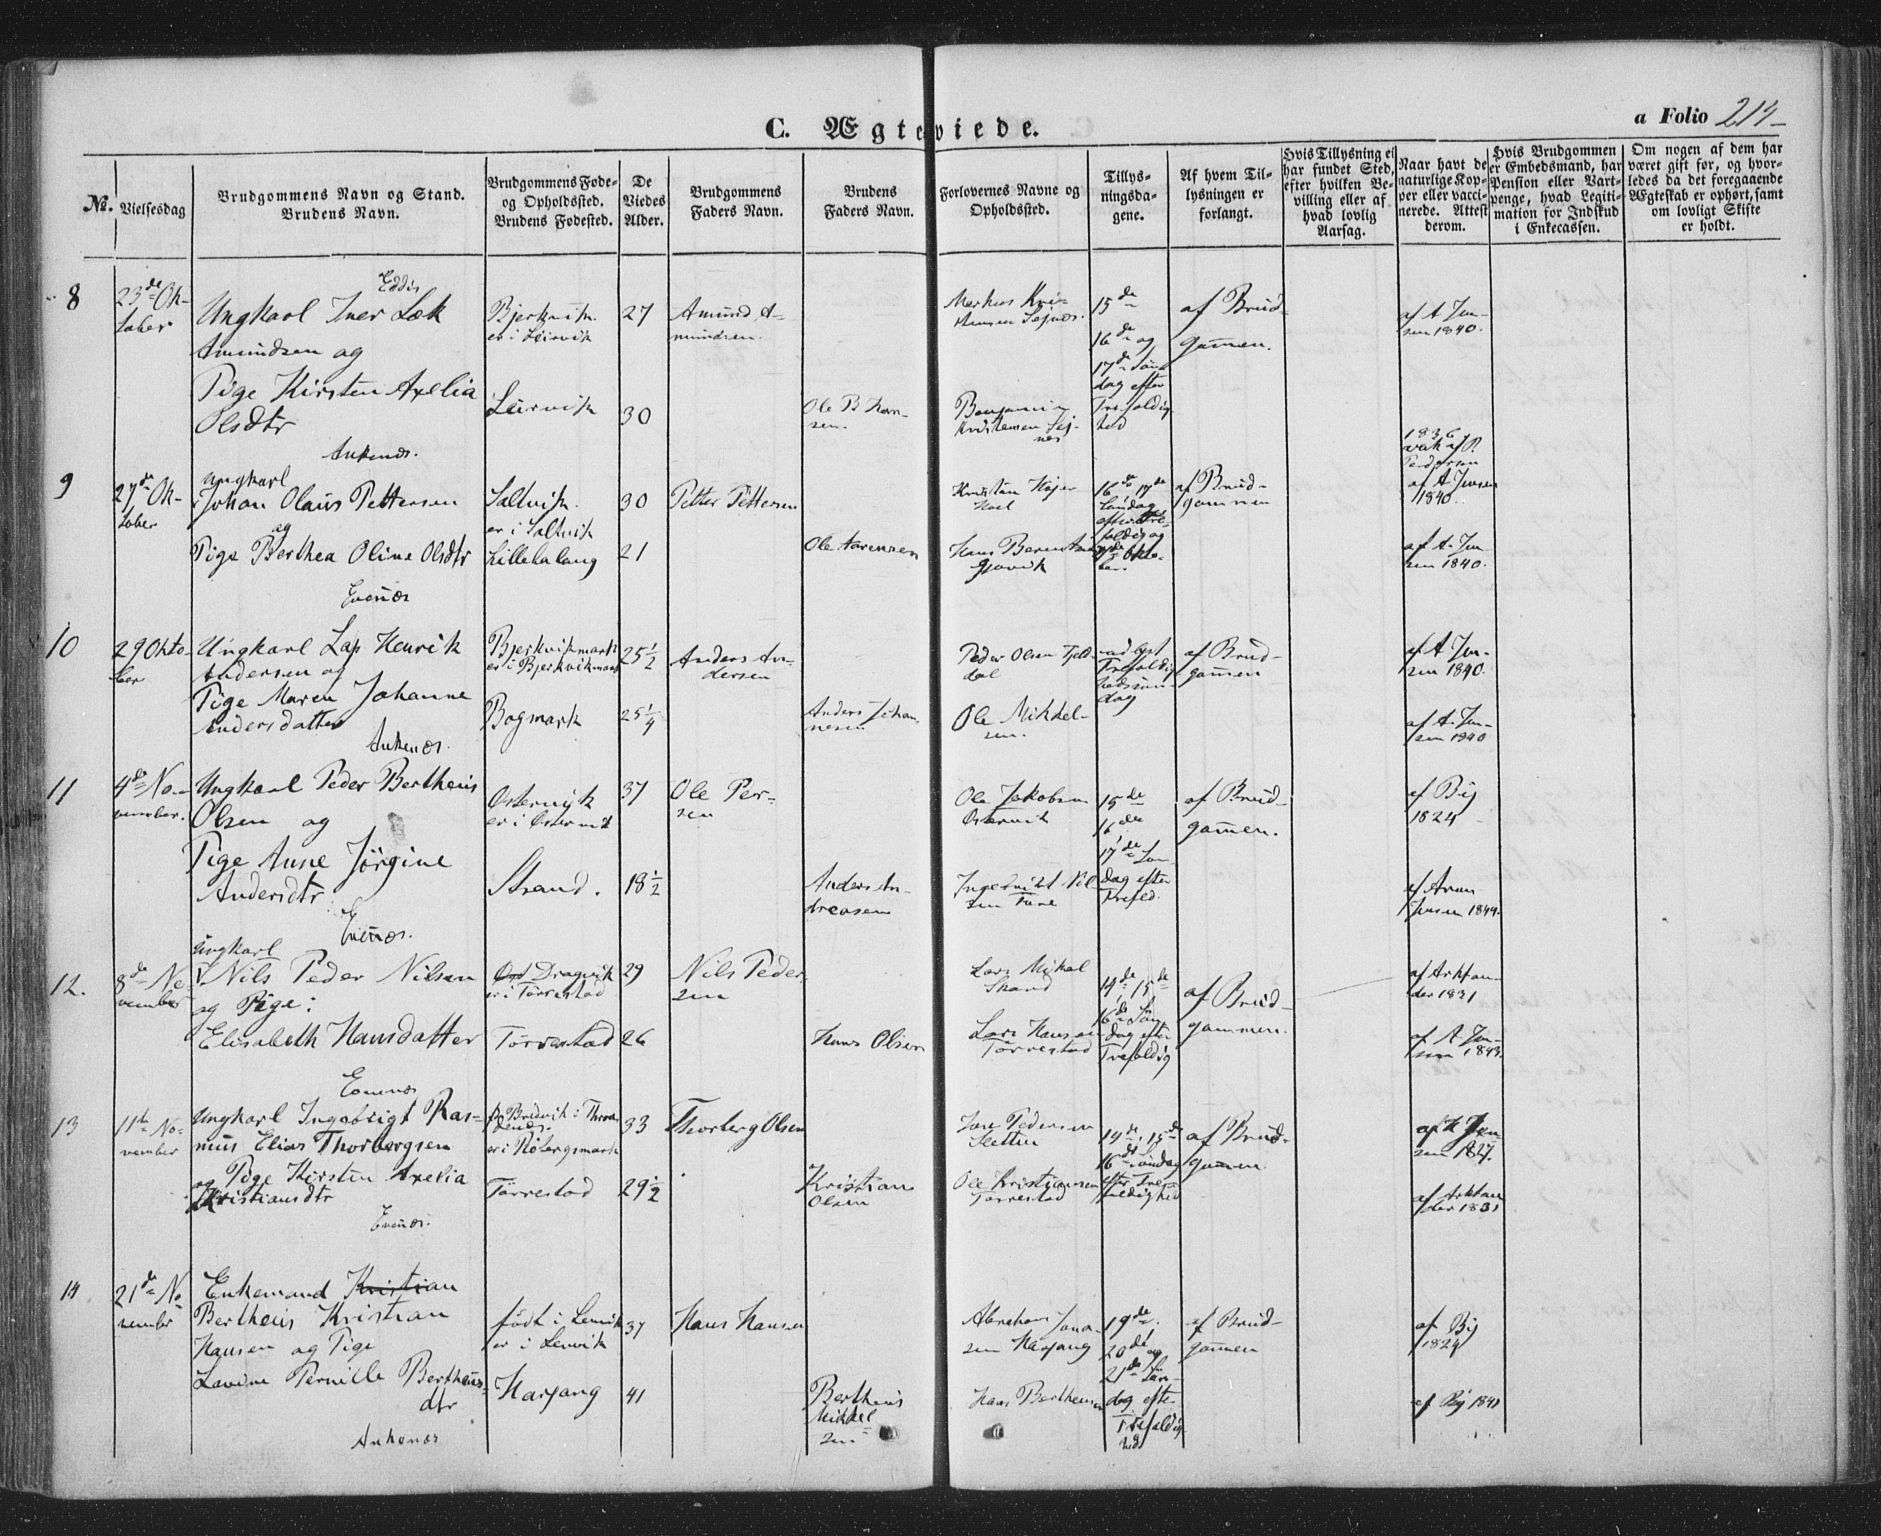 C. Ægteviede.
a Folio 214
No.
Vielsesdag
Brudgommens Navn og Stand.
Brudens Navn.
Brudgommens Føde-
og Opholdssted.
Brudens Fødested.
De
Viedes
Alder.
Brudgommens
Faders Navn.
Brudens
Faders Navn.
Forlovernes Navne og
Opholdssted.
Tillys-
ningsda-
gene.
Af hvem Til-
lysningen er
forlangt.
Hvis Tillysning ei
har fundet Sted,
efter hvilken Be-
villing eller af
hvad lovlig
Aarsag.
Naar havt de
naturlige Kop-
per eller vacci-
nerede. Attest
derom.
Hvis Brudgommen
er Embedsmand, har
Pension eller Vart-
penge, hvad Legiti-
mation for Indskud
i Enkecassen.
Om nogen af dem har
været gift før, og hvor-
ledes da det foregaaende
Ægteskab er ophørt, samt
om lovligt Skifte
er holdt.
8
23de Ok-
tober
Ungkarl Iver Læk
Amundsen og
Pige Kirsten Axelia
Olsdtr
Bjerkvik
er i Leirvik
Leirvik
27
30
Amund A-
mundsen.
Ole B Han-
sen.
Markus Kri-
stensen
Benjamin
Kristensen
15de
16de og
17de Søn
dag efter
Trefoldig
hed
af Brud-
gommen.
af A Jen-
sen 1840.
Ankenæs.
9
27de Ok-
tober
Ungkarl
Johan Olaus Pettersen
og
Pige Berthea Oline Olsdtr
Saltvik.
er i Saltvik
Lillebalang
30
21
Petter Pettersen
Ole Sørensen
16de 17de
Søndag
af Brud-
gommen
1836
af A Jensen
1840
af A. Jen-
sen 1840.
Evenæs
10
29 Okto-
ber
Ungkarl Lap Henrik
Andersen og
Pige Maren Johanne
Andersdatter
Bjerkvikmark
er i Bjerkvikmark
Bogmark
25½
25¼
Anders An-
dersen
Anders Johan-
nesen
Peder Olsen Fjeld-
dal
Ole Mikkel-
sen.
Trefoldig
hedssøn-
dag
af Brud-
gommen
af A Jen-
sen 1840.
af A. Jen-
sen 1840
Ankenæs.
11
4de No-
vember.
Ungkarl Peder Bertheus
Olsen og
Pige Anne Jørgine
Andersdtr
Østervik
er i Østervik
Strand.
37
18½
Ole Per-
sen
Anders An-
dreasen
Ole Jakobsen
Østervik
Ingebrikt Nil-
sen
15de
16de
17de Søn-
dag efter
Trefold.
af Brud-
gommen.
af Bij
1824
af Aron
Jensen 1844.
Evenæs.
12.
8de No-
vember
Ungkarl
Nils Peder Nilsen
og Pige:
Elisabeth Hansdatter
Dragvik
er i Tørrestad
Tørrestad
29
26
Nils Peder-
sen
Hans Olsen
Lars Mikal
Strand
Lars Hansen
Tørrestad
14de, 15de
16de Søn-
dag efter
Trefoldig
af Brud-
gommen.
af Arktan-
der 1831
af A Jen-
sen 1843.
Evenæs
13
11te No-
vember
Ungkarl Ingebrigt Ras-
mus Elias Thorbergsen
og Pige Kirsten Axelia
Kristiansdtr
Tørrestad
33
29½
Thorberg Olsen
Kristian
Olsen
Pedersen
Sletten
Ole Kristiansen
Tørrestad
14de, 15de
16de Søndag
efter Tre-
foldighed
af Brud-
gommen.
af A Jen-
af Arktan
der 1831
Evenæs.
14
21de No-
vember
Enkemand Kristian
Bertheus Kristian
Hansen og Pige
Lavine Pernille Bertheus-
dtr
født i Lenvik
er i Lenvik
Harjang
37
41
Hans Hansen
Bertheus
Mikkel
sen
Abraham Jona-
sen Harjang
Hans Bertheusen
19de.
20de og
21de Søn-
dag efter
Trefoldig
hed
af Brud-
gommen
af Bij
1824
af Bij 1841
Ankenæs